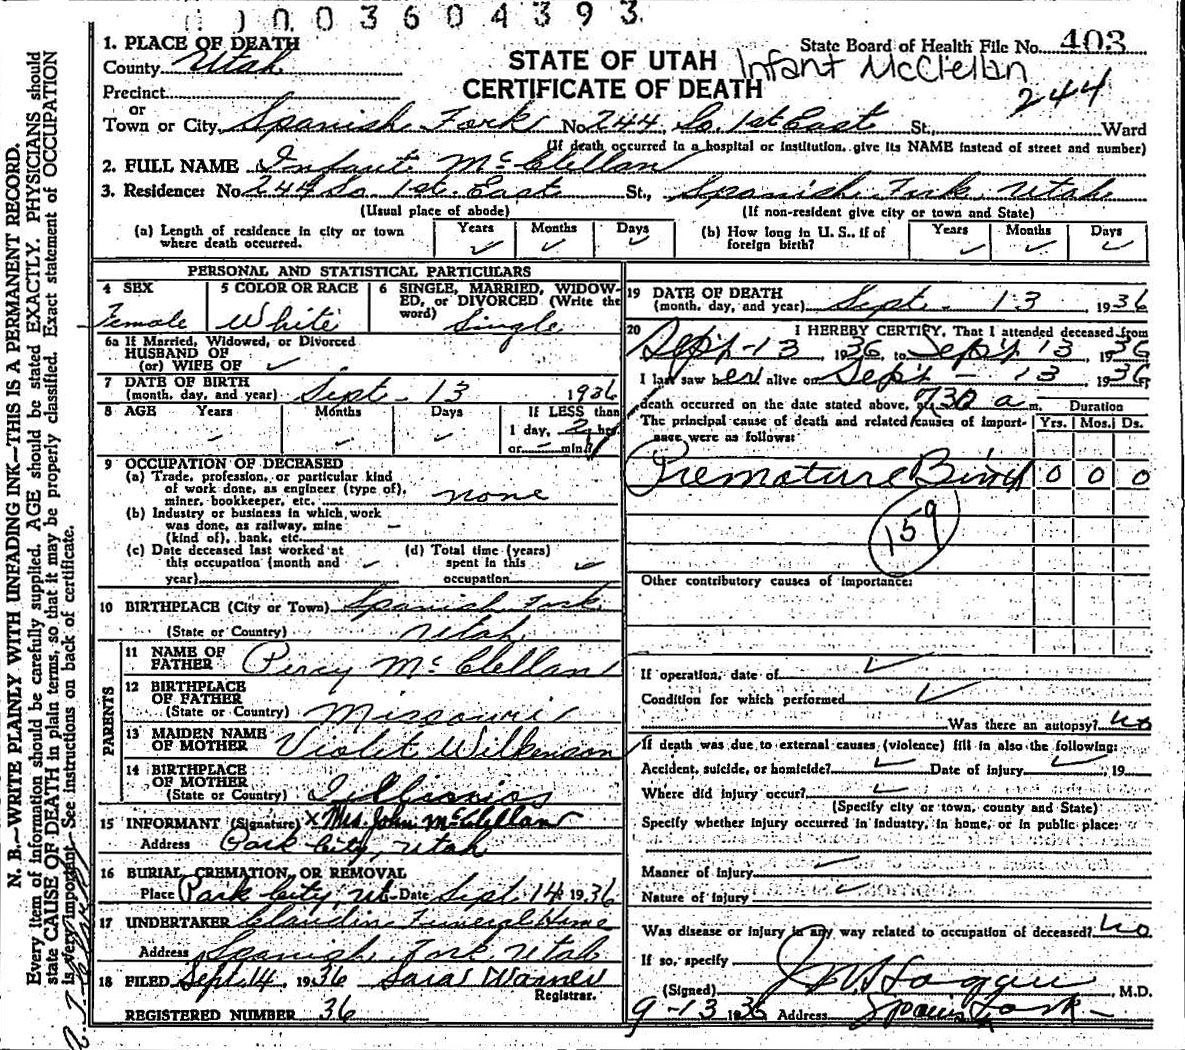 0003604393
1. PLACE OF DEATH
County Utah
State Board of Health File No. 403
STATE OF UTAH
Infant McClellan
CERTIFICATE OF DEATH
244
Precinct
or
Town or City Spanish Fork No. 244 So. 1st East St., Ward
(If death occurred in a hospital or institution, give its NAME instead of street and number)
2. FULL NAME Infant McClellan
3. Residence: No. 244 So 1st. East St., Spanish Fork, Utah
(Usual place of abode) (If non-resident give city or town and State)
(a) Length of residence in city or town where death occurred. Years Months Days
(b) How long in U. S., if of foreign birth? Years Months Days
PERSONAL AND STATISTICAL PARTICULARS
4 SEX Female
5 COLOR OR RACE White
6 SINGLE, MARRIED, WIDOWED, or DIVORCED (Write the word) Single
6a If Married, Widowed, or Divorced
HUSBAND OF
(or) WIFE OF
7 DATE OF BIRTH
(month, day, and year) Sept - 13 1936
8 AGE Years Months Days If LESS than
1 day, 2 hrs.
or min.
9 OCCUPATION OF DECEASED
(a) Trade, profession, or particular kind
of work done, as engineer (type of),
miner, bookkeeper, etc. none
(b) Industry or business in which work
was done, as railway, mine
(kind of), bank, etc.
(c) Date deceased last worked at
this occupation (month and
year)
(d) Total time (years)
spent in this
occupation
10 BIRTHPLACE (City or Town) Spanish Fork,
(State or Country) Utah
PARENTS
11 NAME OF
FATHER Percy McClellan
12 BIRTHPLACE
OF FATHER
(State or Country) Missouri
13 MAIDEN NAME
OF MOTHER Violet Wilkenson
14 BIRTHPLACE
OF MOTHER
(State or Country) Illionios
15 INFORMANT (Signature) x Mrs. John McClellan
Address Park City, Utah
16 BURIAL, CREMATION, OR REMOVAL
Place Park City, Ut. Date Sept. 14 1936
17 UNDERTAKER Claudin Funeral Home
Address Spanish Fork Utah
18 FILED Sept. 14. 1936 Sarah Warner
Registrar.
REGISTERED NUMBER 36
19 DATE OF DEATH
(month, day, and year) Sept - 13 1936
20 I HEREBY CERTIFY, That I attended deceased from
Sept-13, 1936, to Sept 13, 1936
I last saw her alive on Sept - 13, 1936,
death occurred on the date stated above, at 730 a m.
The principal cause of death and related causes of importance were as follows:
Duration
Yrs. Mos. Ds.
Premature Birth 0 0 0
159
Other contributory causes of importance:
If operation, date of
Condition for which performed
Was there an autopsy? no
If death was due to external causes (violence) fill in also the following:
Accident, suicide, or homicide? Date of injury , 19
Where did injury occur?
(Specify city or town, county and State)
Specify whether injury occurred in industry, in home, or in public place:
Manner of injury
Nature of injury
Was disease or injury in any way related to occupation of deceased? no
If so, specify
(Signed) , M.D.
9-13 1936 Address Spanish Fork
N. B.—WRITE PLAINLY WITH UNFADING INK—THIS IS A PERMANENT RECORD.
Every item of information should be carefully supplied. AGE should be stated EXACTLY. PHYSICIANS should
state CAUSE OF DEATH in plain terms, so that it may be properly classified. Exact statement of OCCUPATION
is very important. See instructions on back of certificate.